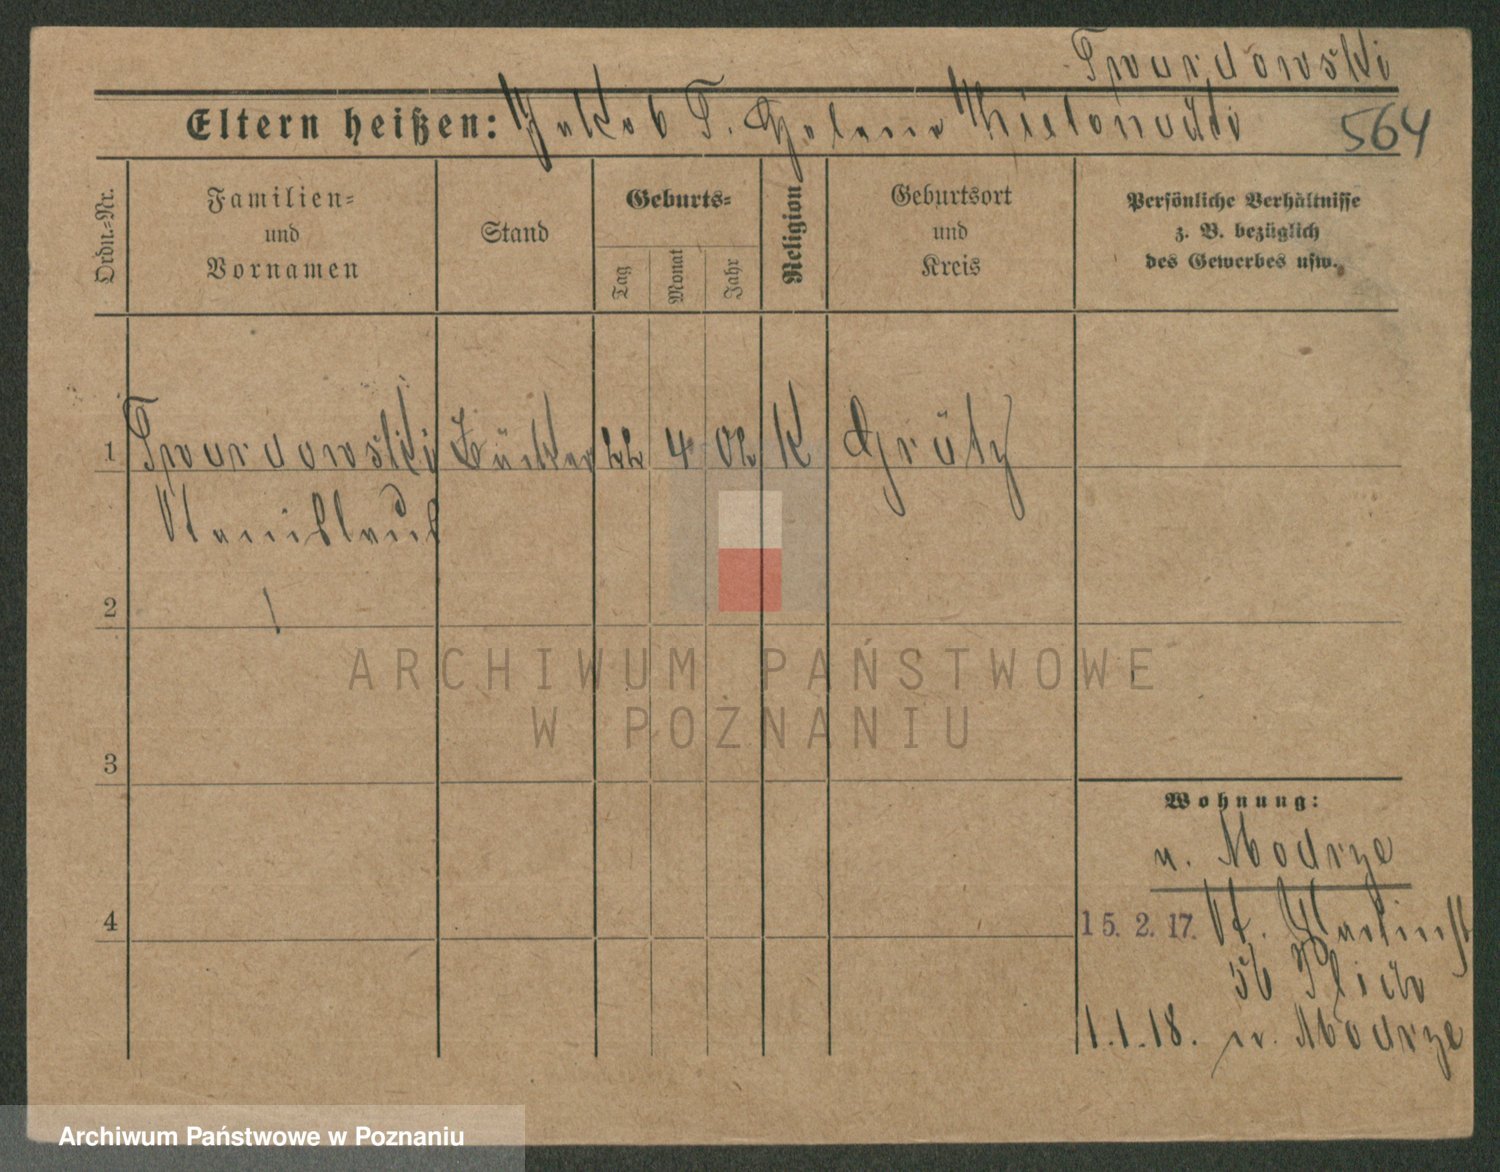 Twardowski
Eltern heißen: Jakob T. Helene
564
Ordn.-Nr.
Familien-
und
Vornamen
Stand
Geburts-
Tag
Monat
Jahr
Religion
Geburtsort
und
Kreis
Persönliche Verhältnisse
z. B. bezüglich
des Gewerbes usw.
1 Twardowski Bäcker 22 4 02 K Grätz
Stanislaus
2
3
4
ARCHIWUM PAŃSTWOWE
W POZNANIU
Wohnung:
n. Modrze
15. 2. 17. St. Martinst
56
1.1.18. n. Modrze
Archiwum Państwowe w Poznaniu